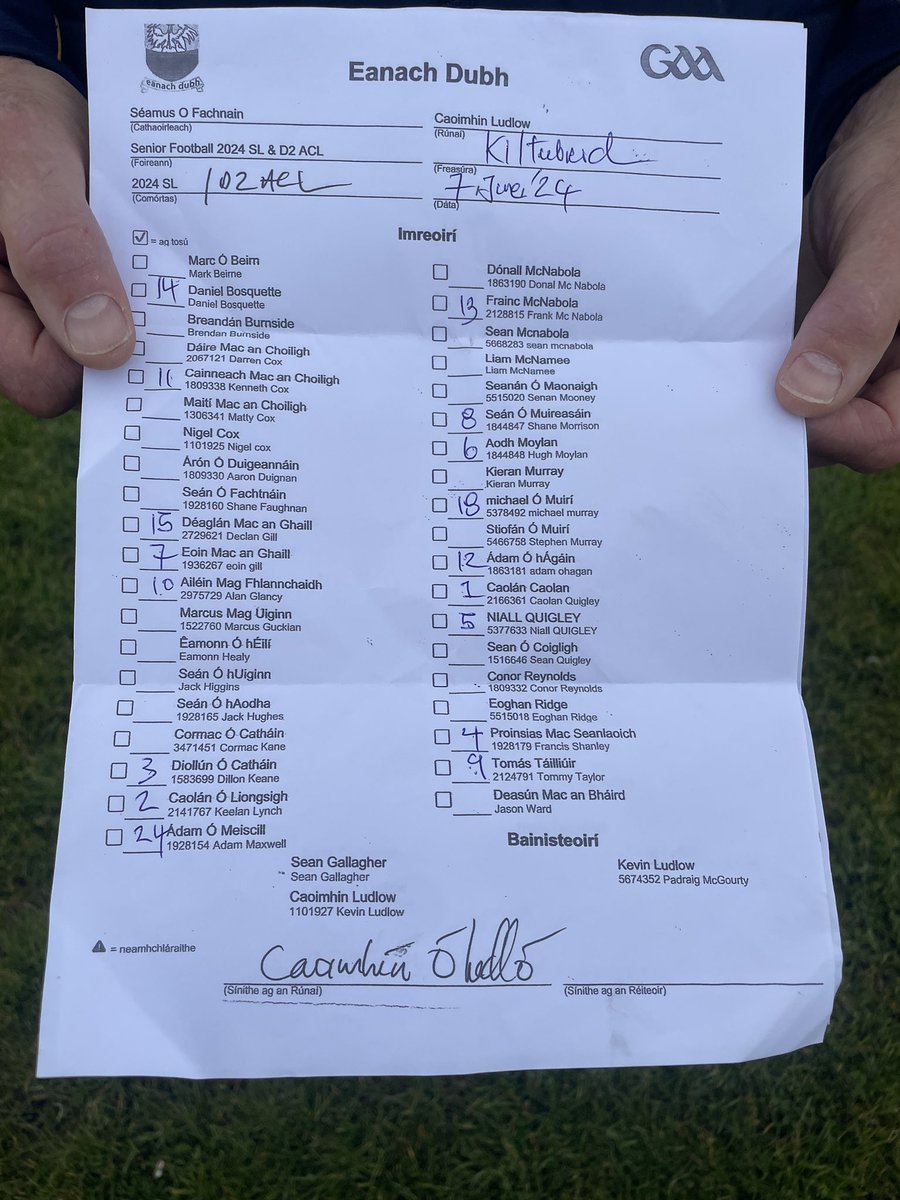 eanach dubh
Eanach Dubh
GAA
Séamus O Fachnain
(Cathaoirleach)
Caoimhin Ludlow
(Rúnaí)
Senior Football 2024 SL & D2 ACL
(Foireann)
Kiltubrid
(Freasúra)
2024 SL / D2 ACL
(Comórtas)
7 June '24
(Dáta)
Imreoirí
= ag tosú
Marc Ó Beirn
Mark Beirne
14 Daniel Bosquette
Daniel Bosquette
Breandán Burnside
Brendan Burnside
Dáire Mac an Choiligh
2067121 Darren Cox
11 Cainneach Mac an Choiligh
1809338 Kenneth Cox
Maití Mac an Choiligh
1306341 Matty Cox
Nigel Cox
1101925 Nigel cox
Árón Ó Duigeannáin
1809330 Aaron Duignan
Seán Ó Fachtnáin
1928160 Shane Faughnan
15 Déaglán Mac an Ghaill
2729621 Declan Gill
7 Eoin Mac an Ghaill
1936267 eoin gill
10 Ailéin Mag Fhlannchaidh
2975729 Alan Glancy
Marcus Mag Uiginn
1522760 Marcus Guckian
Éamonn Ó hÉilí
Eamonn Healy
Seán Ó hUiginn
Jack Higgins
Seán Ó hAodha
1928165 Jack Hughes
Cormac Ó Catháin
3471451 Cormac Kane
3 Diollún Ó Catháin
1583699 Dillon Keane
2 Caolán Ó Liongsigh
2141767 Keelan Lynch
24 Ádam Ó Meiscill
1928154 Adam Maxwell
Dónall McNabola
1863190 Donal Mc Nabola
13 Frainc McNabola
2128815 Frank Mc Nabola
Sean Mcnabola
5668283 sean mcnabola
Liam McNamee
Liam McNamee
Seanán Ó Maonaigh
5515020 Senan Mooney
8 Seán Ó Muireasáin
1844847 Shane Morrison
6 Aodh Moylan
1844848 Hugh Moylan
Kieran Murray
Kieran Murray
18 michael Ó Muirí
5378492 michael murray
Stiofán Ó Muirí
5466758 Stephen Murray
12 Ádam Ó hÁgáin
1863181 adam ohagan
1 Caolán Caolan
2166361 Caolan Quigley
5 NIALL QUIGLEY
5377633 Niall QUIGLEY
Sean Ó Coigligh
1516646 Sean Quigley
Conor Reynolds
1809332 Conor Reynolds
Eoghan Ridge
5515018 Eoghan Ridge
4 Proinsias Mac Seanlaoich
1928179 Francis Shanley
9 Tomás Táilliúir
2124791 Tommy Taylor
Deasún Mac an Bháird
Jason Ward
Bainisteoirí
Sean Gallagher
Sean Gallagher
Caoimhin Ludlow
1101927 Kevin Ludlow
Kevin Ludlow
5674352 Padraig McGourty
= neamhchláraithe
Caoimhín Ó
(Síníthe ag an Rúnaí)
(Síníthe ag an Réiteoir)